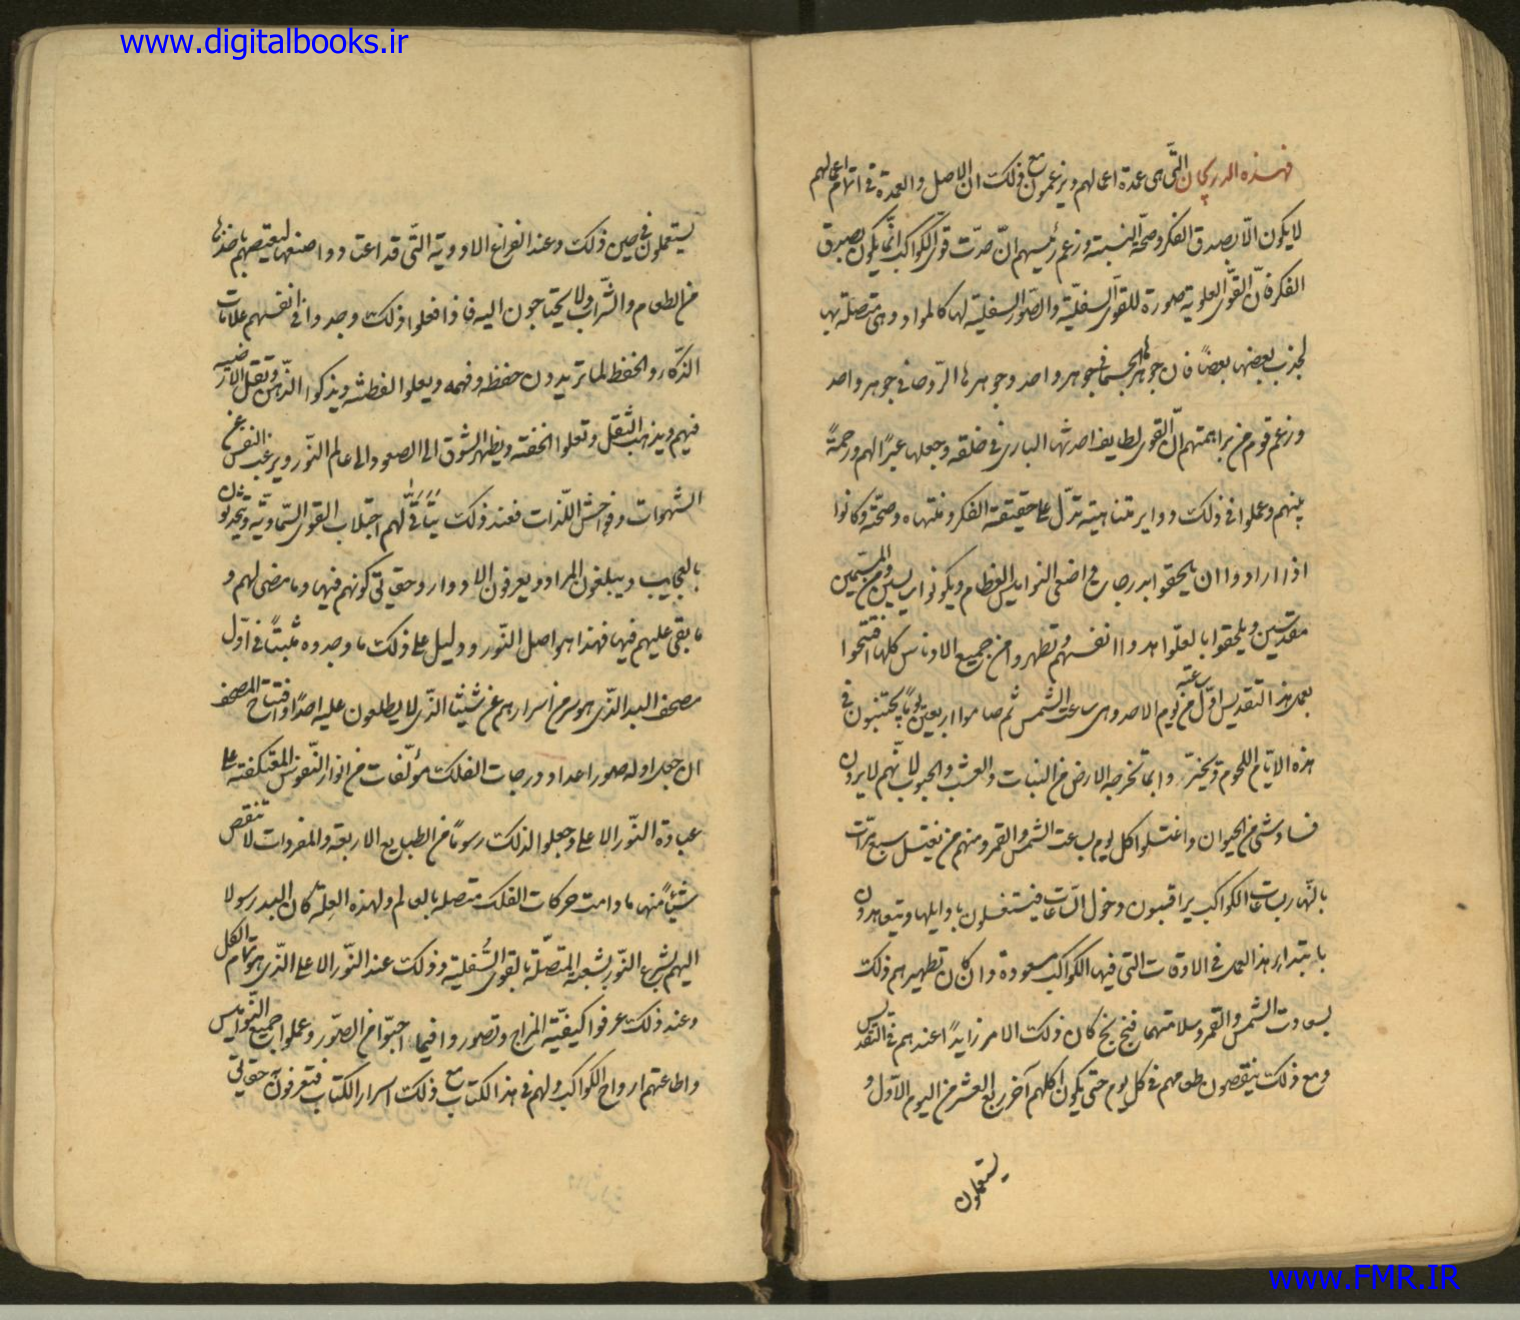 www.digitalbooks.ir
فهذه الدرجان التّى هى عمدة اعمالهم ويزعمون مع ذلك ان الاصل والعمدة فى اتمام اعمالهم
لا يكون الّا بصدق الفكر وصحّة النسبة وزعم رئيسهم انّ صدّت قوى الكواكب انّما يكون بصدق
الفكر فانّ القوى العلوية صورة للقوى السفليّة والصّور السفليّة لها كالمواد وهى متصلة بها
لجذب بعضها بعضاً فان جوهرها الجسمانى جوهر واحد وجوهرها الرّوحانى جوهر واحد
وزعم قوم من براهمتهم انّ القوى لطايف احدثها البارئ فى خلقه وجعلها عبراً لهم ورحمةً
بينهم وعملوا فى ذلك دواير متناهية تدلّ على حقيقة الفكر ومنتهاه وصحّته وكانوا
اذا ارادوا ان يلحقوا بدرجات واضعى النواميس العظام ويكونوا
مقدسين ويلحقوا بالعلو اهدوا انفسهم وتطهروا من جميع الادناس كلها افتتحوا
بعمل هذا التقديس اوّل ساعة من يوم الاحد وهى ساعة الشمس ثم صاموا اربعين يوماً يجتنبون فى
هذه الايّام اللحوم وانما تخرجه الارض من النبات والعشب والحبوب لانّهم لا يرون
فساد شئ من الحيوان واغتسلوا كل يوم بساعت الشمس والقمر ومنهم من يغتسل سبع مرّات
بالنّهار بساعات الكواكب يراقبون دخول السّاعات فيستغلون باوايلها ويتعاهدون
بابتداء هذا العمل فى الاوقات التى فيها الكواكب مسعودة وان كان تطهيرهم ذلك
بسعادت الشمس والقمر وسلامتهما فبخ بخ كان ذلك الامر زايداً عندهم فى التقديس
ومع ذلك ينقصون طعامهم فى كل يوم حتى يكون اكلهم آخر ربع العشر من اليوم الاوّل و
يستعملون
يستعملون فى حين ذلك وعند الفراغ الادوية التّى قد اعتادوا صنعها ليعتصبهم باخذها
من الطعام والشّراب ولا يحتاجون اليه فاذا فعلوا ذلك وجدوا فى انفسهم علامات
الذّكاء والحفظ لما تريدون حفظه وفهمه ويعلوا الفطنة ويذكوا الذّهن وتقل الارضية
فيهم ويذهب الثقل وتعلوا الخفّة ويظهر الشوق الى الصعود الى عالم النّور ويرغب النفس عن
الشهوات وفواحش اللّذات فعند ذلك يتأتّى لهم اجتلاب القوى السّماوية ويتحدّثون
بالعجايب ويبلغون المراد ويعرفون الادوار وحقايق كونهم فيها وما مضى لهم و
ما بقى عليهم فيها فهذا هو اصل النّور ودليل على ذلك ما وجدوه مثبتاً فى اوّل
مصحف البد الذّى هو سرّ من اسرارهم عن شيث الذّى لا يطلعون عليه احداً وافتتاح المصحف
ان جعل اوله صور اعداد ودرجات الفلك مؤلّفات من انوار النّفوس المعتكفة على
عبادة النّور الاعلى وجعلوا لذلك رسوماً من الطبايع الاربعة والمفردات لا تنقص
شيئاً منها ما دامت حركات الفلك متصلة بالعالم ولهذه العلة كان البد رسولا
اليهم بشرع النّور بشعبه المتصّلة بالقوى السُّفلية وذلك عند النّور الاعلى الذّى هو تمام الكل
وعند ذلك عرفوا كيفيّة المزاج وتصوروا فيما احبّوا من الصّور وعملوا جميع النّواميس
واطاعتهم ارواح الكواكب ولهم فى هذا الكتاب مع ذلك اسرار الكتاب فتعرفون حقايق
www.FMR.IR